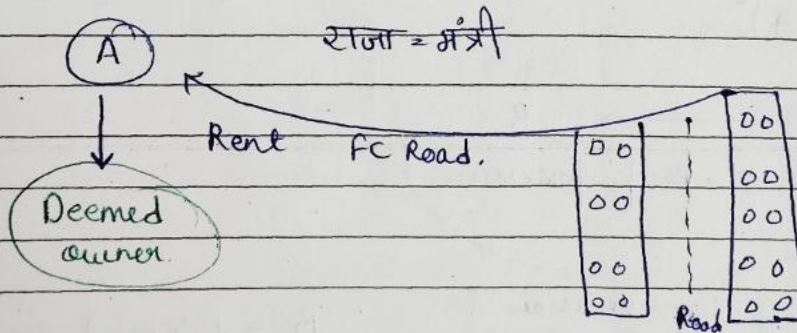 राजा = मंत्री
A
Rent FC Road.
Deemed
owner.
Road